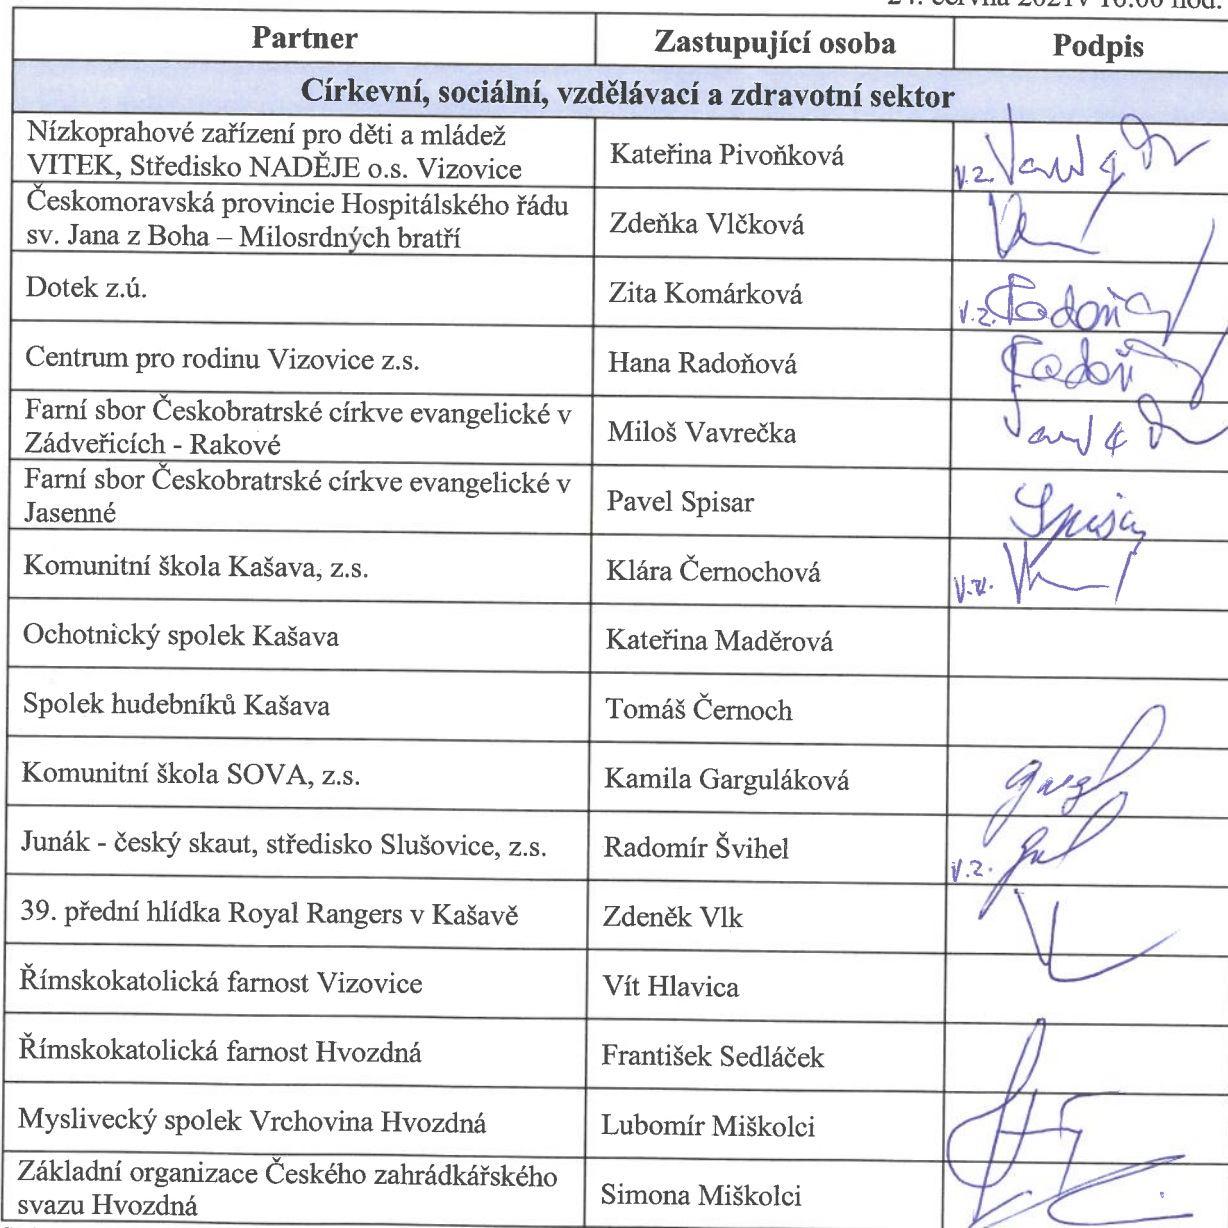 24. června 2021v 16:00 hod.
Partner Zastupující osoba Podpis
Církevní, sociální, vzdělávací a zdravotní sektor
Nízkoprahové zařízení pro děti a mládež
VITEK, Středisko NADĚJE o.s. Vizovice Kateřina Pivoňková v.z.
Českomoravská provincie Hospitálského řádu
sv. Jana z Boha – Milosrdných bratří Zdeňka Vlčková
Dotek z.ú. Zita Komárková v.z.
Centrum pro rodinu Vizovice z.s. Hana Radoňová
Farní sbor Českobratrské církve evangelické v
Zádveřicích - Rakové Miloš Vavrečka
Farní sbor Českobratrské církve evangelické v
Jasenné Pavel Spisar
Komunitní škola Kašava, z.s. Klára Černochová v.z.
Ochotnický spolek Kašava Kateřina Maděrová
Spolek hudebníků Kašava Tomáš Černoch
Komunitní škola SOVA, z.s. Kamila Garguláková
Junák - český skaut, středisko Slušovice, z.s. Radomír Švihel v.z.
39. přední hlídka Royal Rangers v Kašavě Zdeněk Vlk
Římskokatolická farnost Vizovice Vít Hlavica
Římskokatolická farnost Hvozdná František Sedláček
Myslivecký spolek Vrchovina Hvozdná Lubomír Miškolci
Základní organizace Českého zahrádkářského
svazu Hvozdná Simona Miškolci